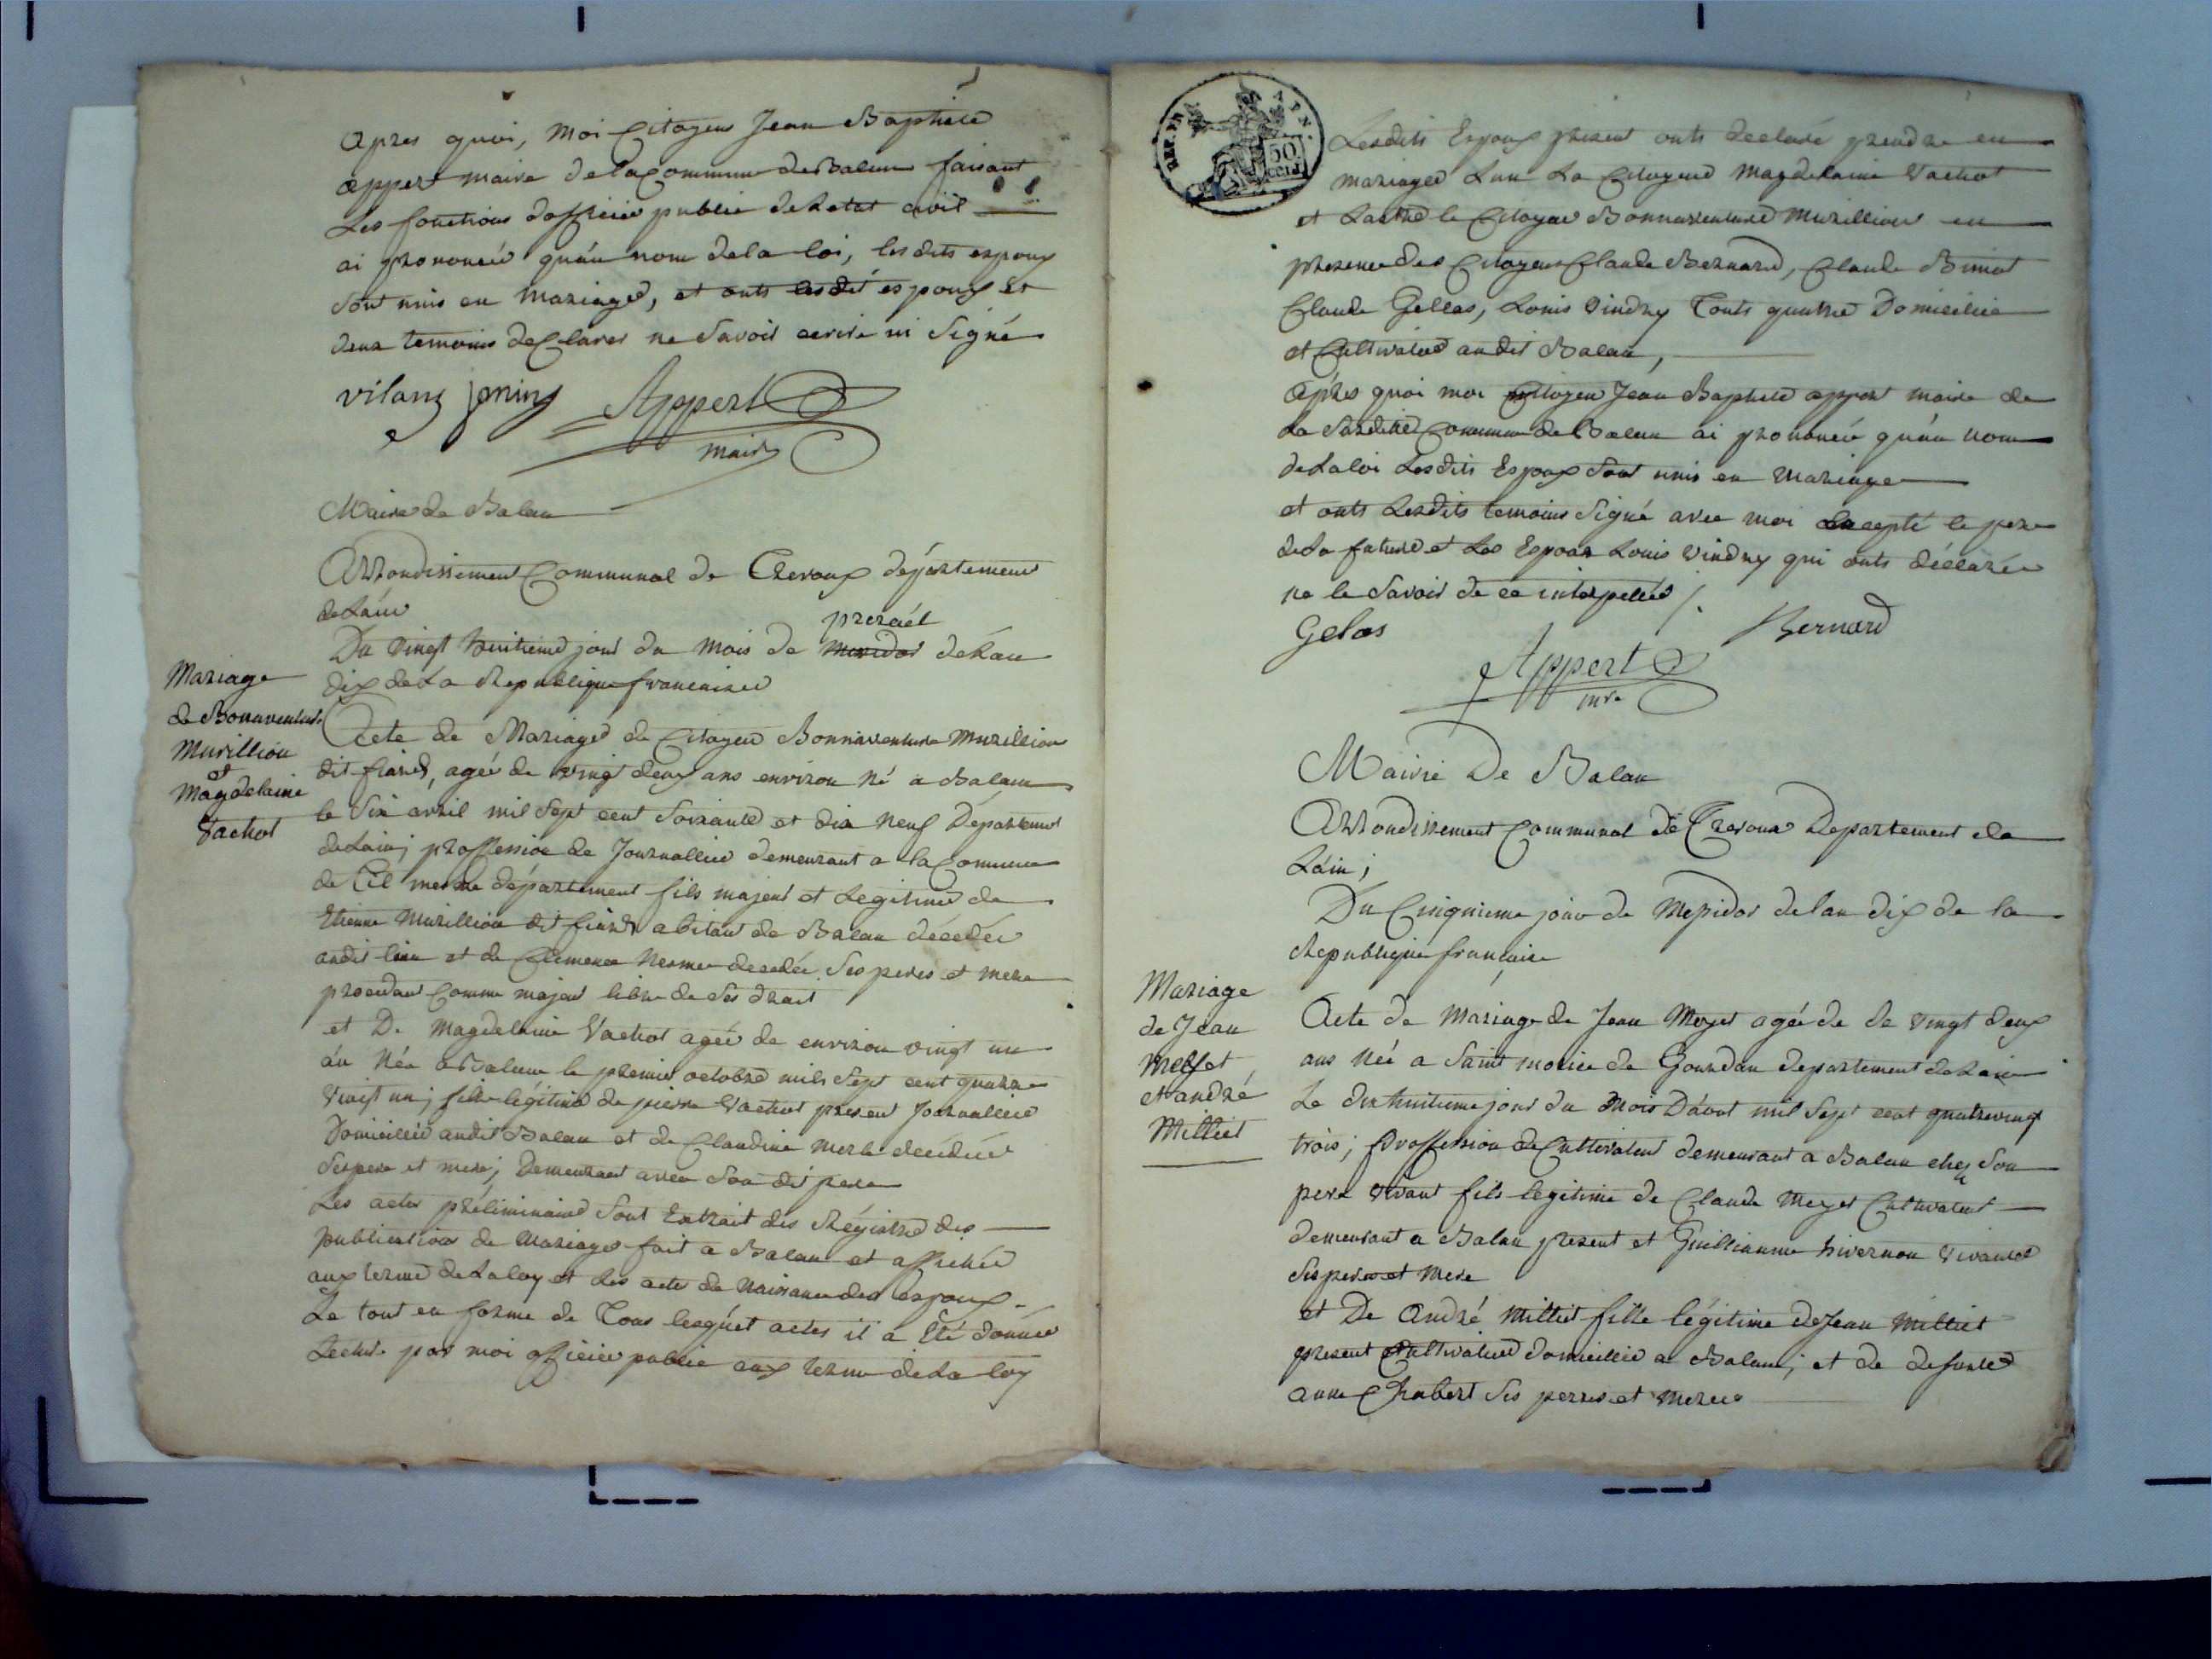 Apres quoi, Moi Citoyen Jean Baptiste
appert maire de la Commune de Balan faisant
Les fonctions d'officier public de Letat civil
ai prononcé qu'au nom de la loi, les dits espoux
sont unis en mariage, et onts les dit espoux et
deux temoins declarer ne Savoir ecrire ni Signé
vilang Appert
maire
Mairie de Balan
Arrondissement Communal de Trevoux département
de Láin
prereal
Du vingt huitieme jour du mois de Mesidor de Lan
dix de La Republique francaise
Mariage
de Bonaventure
Murillion
et
Magdelaine
Vachot
Acte de Mariage de Citoyen Bonnaventure Murillion
dit fiard, agée de vingt deux ans environ Né a Balan
le Six avril mil Sept cent Soixante et dix Neuf Departement
de Lain; proffession de Journallier demeurant a la Commune
de Til mesme département fils majeur et Legitime de
Etienne Murillion dit fiard abitant de Balan décédé
audit lieu et de Clemence Nesme decedée Ses peres et mere
procedant Comme majeur libre de Ses drait
et De Magdelaine Vachot agée de environ vingt un
án Née a Balan le premier octobre mils Sept cent quatre
Vingt un; fille légitime de pierre Vachot present Journallier
Domicillié audit Balan et de Claudine Merle décédée
Ses pere et mere; Demeurant avec Son dit pere
Les actes préliminaire Sont Extrait des Régistre des
publication de Mariage fait a Balan et affichée
aux terme de La loy et Les acte de Naissance des espoux
Le tout en forme de Tous lesquêt actes il a Eté donnée
Lecture par moi officier public aux terme de La loy
REP. FRA
50
CENT
Lesdits Espoux present onts declaré prendre en
mariage Lun La Citoyene Magdelaine Vachot
et Lautre le Citoyen Bonnaventure Murillion en
presence des Citoyens Claude Bernard, Claude Binot
Claude Gellas, Louis Vindry Touts quatre Domicilié
et Cultivateur audit Balan,
Après quoi moi Citoyen Jean Baptiste appert maire de
La Susdite Commune de Balan ai prononcé qu'au nom
de La loi Lesdits Espoux Sont unis en Mariage
et onts Lesdits temoins Signé avec moi Excepté le pere
de La future et Les Espoux Louis Vindry qui onts déclarée
ne le Savoir de ce interpellés /.
Gelas Bernard
Appert
mre
Mairie De Balan
Arrondissement Communal de Trevoux Departement de
Láin;
Du Cinquieme jour de Mesidor de lan dix de la
Republique francaise
Mariage
de Jean
Meyet
et andré
Milliet
Acte de Mariage de Jean Meyet agée de de vingt deux
ans Née a Saint Morice de Gourdan departement de Lain
Le dix huitieme jour du Mois D'avout mil Sept cent quatrevingt
trois; proffession de Cultivateur demeurant a Balan chez Son
pere vivant fils legitime de Claude Meyet Cultivateur
demeurant a Balan present et Guilliaume hivernon vivante
Ses peres et Mere
et De André Milliet fille légitime de Jean Milliet
present Cultivateur domicillié a Balan; et de defunte
anne Chabert Ses perres et Meres